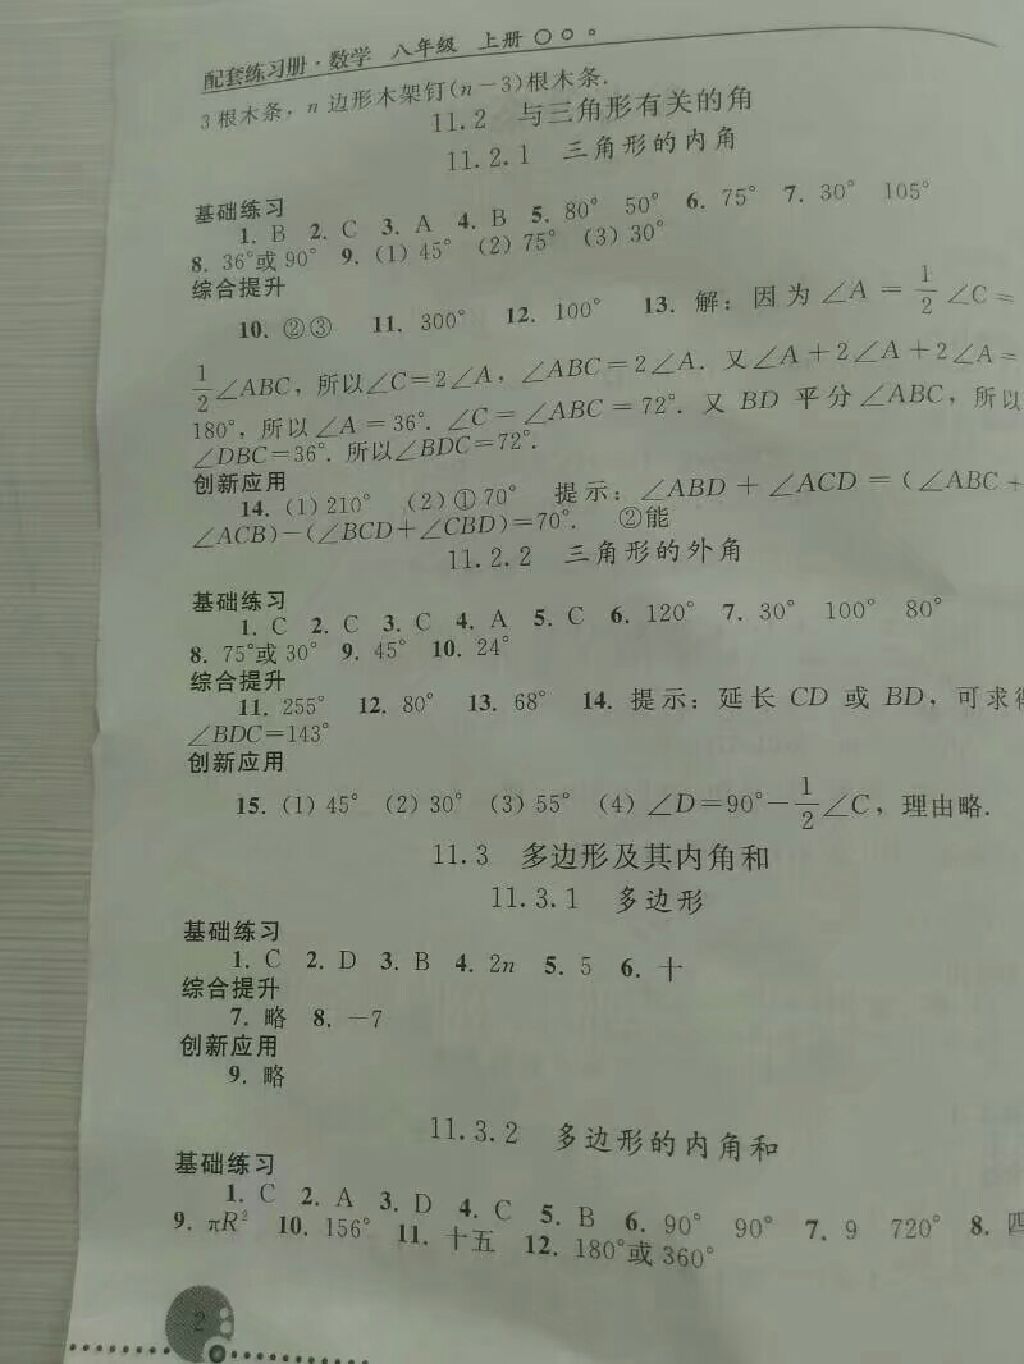 配套练习册·数学 八年级 上册
3根木条，n边形木架钉(n－3)根木条.
11.2 与三角形有关的角
11.2.1 三角形的内角
基础练习
1. B 2. C 3. A 4. B 5. 80° 50° 6. 75° 7. 30° 105°
8. 36°或90° 9. (1)45° (2)75° (3)30°
综合提升
10. ②③ 11. 300° 12. 100° 13. 解：因为∠A＝1/2∠C＝
1/2∠ABC，所以∠C＝2∠A，∠ABC＝2∠A. 又∠A＋2∠A＋2∠A＝
180°，所以∠A＝36°. ∠C＝∠ABC＝72°. 又BD平分∠ABC，所以
∠DBC＝36°. 所以∠BDC＝72°.
创新应用
14. (1)210° (2)①70° 提示：∠ABD＋∠ACD＝(∠ABC＋
∠ACB)－(∠BCD＋∠CBD)＝70°. ②能
11.2.2 三角形的外角
基础练习
1. C 2. C 3. C 4. A 5. C 6. 120° 7. 30° 100° 80°
8. 75°或30° 9. 45° 10. 24°
综合提升
11. 255° 12. 80° 13. 68° 14. 提示：延长CD或BD，可求得
∠BDC＝143°
创新应用
15. (1)45° (2)30° (3)55° (4)∠D＝90°－1/2∠C，理由略.
11.3 多边形及其内角和
11.3.1 多边形
基础练习
1. C 2. D 3. B 4. 2n 5. 5 6. 十
综合提升
7. 略 8. －7
创新应用
9. 略
11.3.2 多边形的内角和
基础练习
1. C 2. A 3. D 4. C 5. B 6. 90° 90° 7. 9 720° 8. 四
9. πR² 10. 156° 11. 十五 12. 180°或360°
2